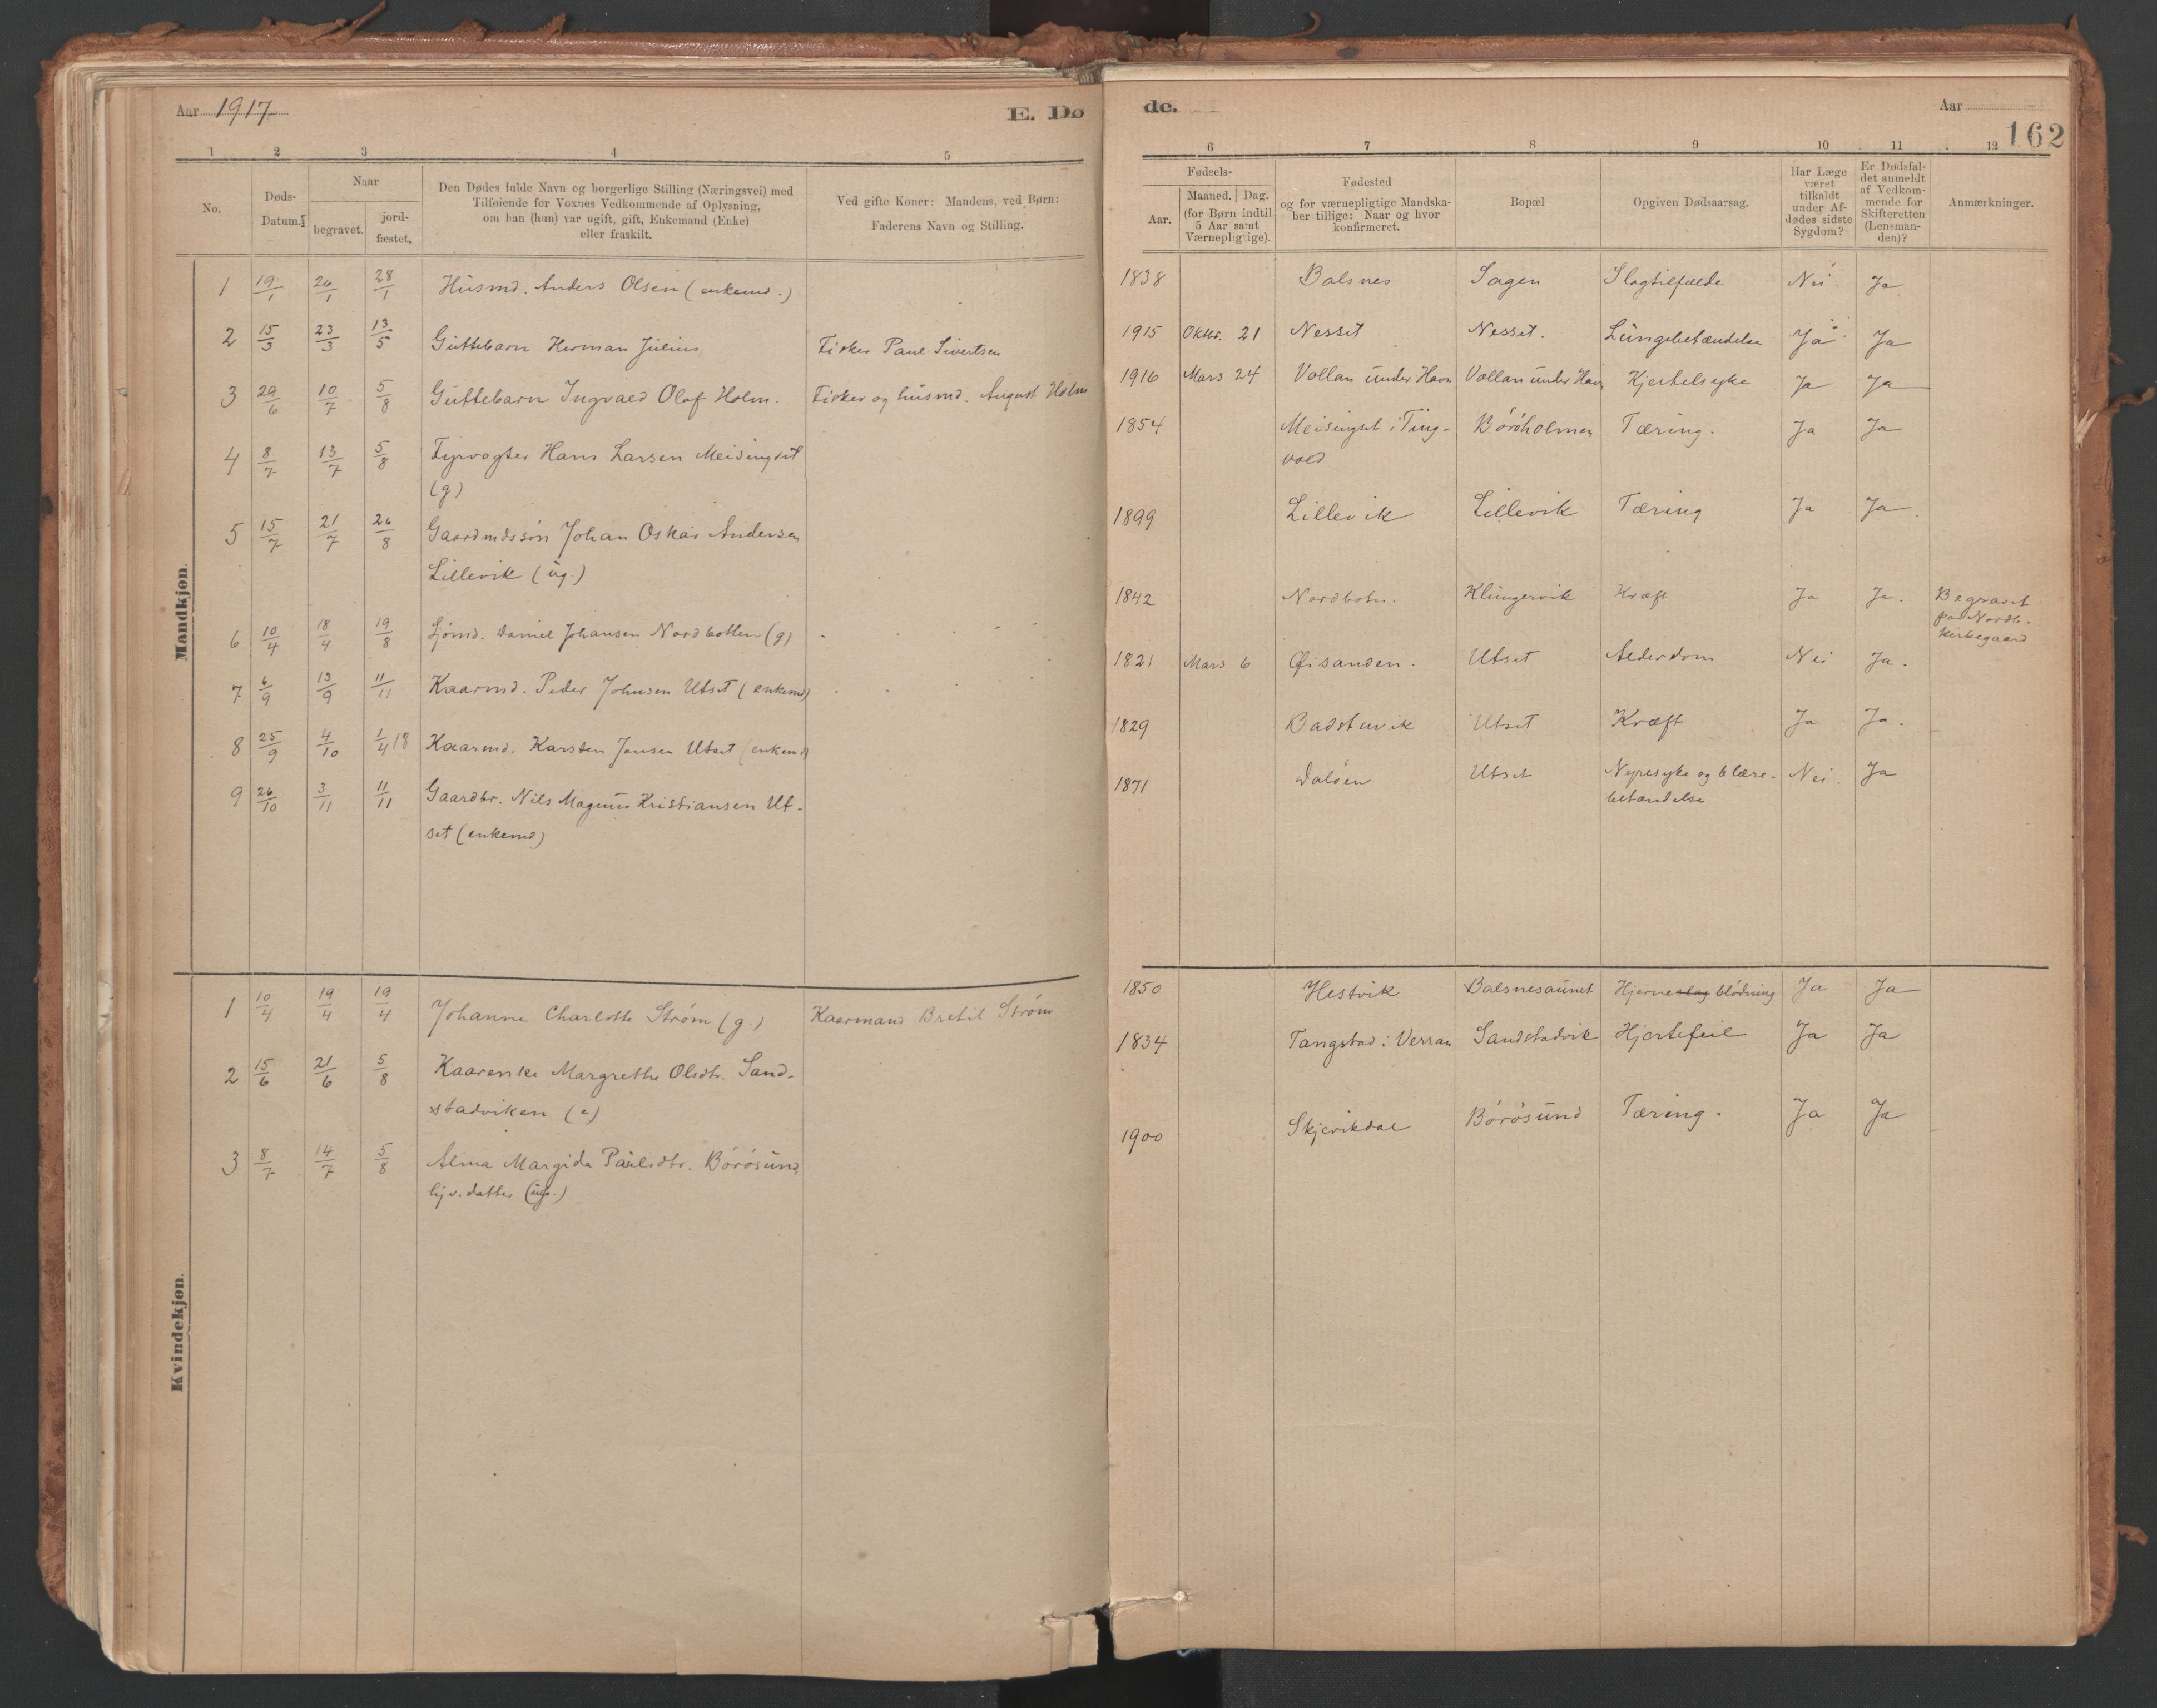 Aar 1917
E. Dø
de.
Aar
162
1 2 3 4 5
6 7 8 9 10 11 12
No.
Døds-
Datum.
Naar
begravet.
jord-
fæstet.
Den Dødes fulde Navn og borgerlige Stilling (Næringsvei) med
Tilføiende for Voxnes Vedkommende af Oplysning,
om han (hun) var ugift, gift, Enkemand (Enke)
eller fraskilt.
Ved gifte Koner: Mandens, ved Børn:
Faderens Navn og Stilling.
Fødsels-
Aar.
Maaned. Dag.
(for Børn indtil
5 Aar samt
Værnepligtige).
Fødested
og for værnepligtige Mandska-
ber tillige: Naar og hvor
konfirmeret.
Bopæl
Opgiven Dødsaarsag.
Har Læge
været
tilkaldt
under Af-
dødes sidste
Sygdom?
Er Dødsfal-
det anmeldt
af Vedkom-
mende for
Skifteretten
(Lensman-
den)?
Anmærkninger.
Mandkjøn.
1 19/1 26/1 28/1 Husmd. Anders Olsen (enkemd.) 1838 Balsnes Sagen Slagtilfælde Nei Ja
2 15/3 23/3 13/5 Guttebarn Herman Julius Fisker Paul Sivertsen 1915 Oktbr. 21 Nesset Nesset. Lungebetændelse Ja Ja
3 29/6 10/7 5/8 Guttebarn Ingvald Olaf Holm. Fisker og husmd. August Holm 1916 Mars 24 Vollan under Havn Vollan under Havn Kjertelsyke Ja Ja
4 8/7 13/7 5/8 Fyrvogter Hans Larsen Meisingset 1854 Meisingset i Ting- Böröholmen Tæring. Ja Ja
(g) vold
5 15/7 21/7 26/8 Gaardmdssön Johan Oskar Andersen 1899 Lillevik Lillevik Tæring Ja Ja
Lillevik (ug.)
6 10/4 18/4 19/8 Sjömd. Daniel Johansen Nordbotten (g) 1842 Nordbotn. Klungervik Kræft Ja Ja. Begravet
paa Nordb.
kirkegaard
7 6/9 13/9 11/11 Kaarmd. Peder Johnsen Utset (enkemd) 1821 Mars 6 Øisanden. Utset Alderdom Nei Ja.
8 25/9 4/10 1/4 18 Kaarmd. Karsten Jonsen Utset (enkemd) 1829 Badstuvik Utset Kræft Ja Ja.
9 26/10 3/11 11/11 Gaardbr. Nils Magnus Kristiansen Ut- 1871 Dalöen Utset Nyresyke og blære- Nei. Ja
set (enkemd) betændelse
Kvindekjøn.
1 10/4 19/4 19/4 Johanna Charlotte Strøm (g.) Kaarmand Bretil Strøm 1850 Hestvik Balsnesaunet Hjerneslag blödning Ja Ja
2 15/6 21/6 5/8 Kaarenke Margrethe Olsdtr. Sand- 1834 Tangstad i Verran Sandstadvik Hjertefeil Ja Ja
stadviken (e)
3 8/7 14/7 5/8 Alma Margida Paulsdtr. Börösund 1900 Skjevikdal Börösund Tæring. Ja Ja
datter (ug.)